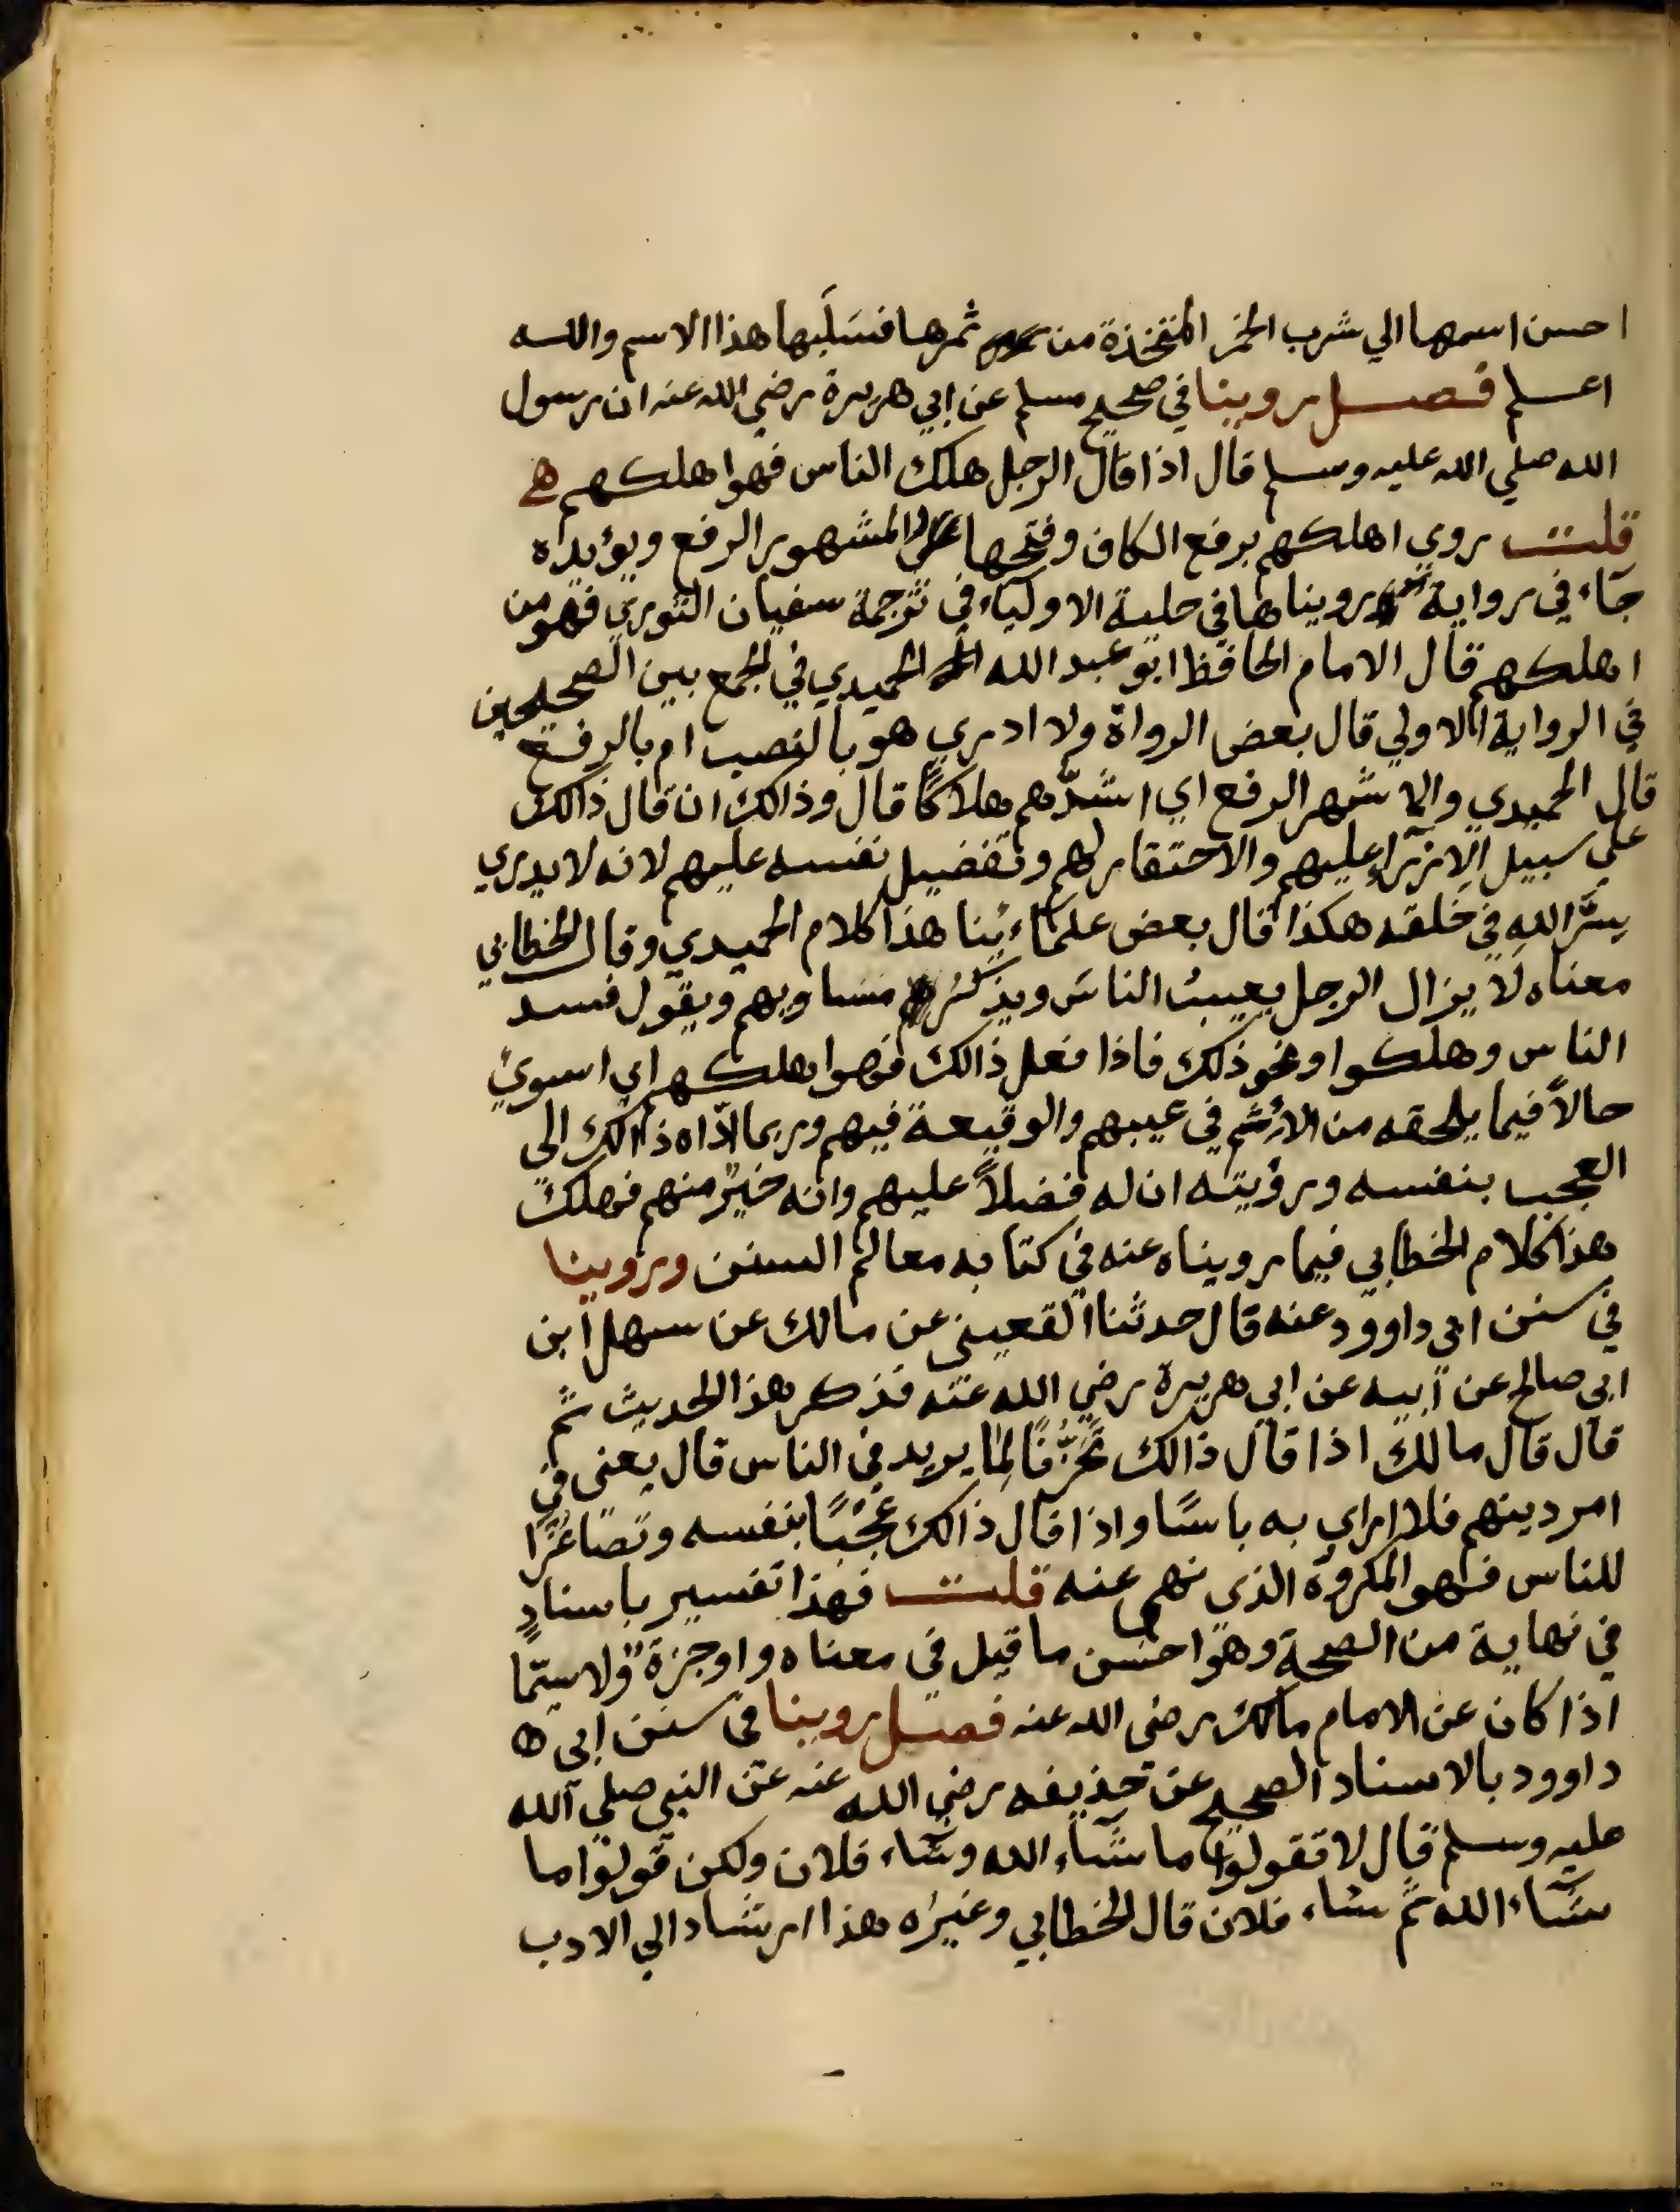 احسن اسمها الي شرب الخمر المتخذة من ثمرها فسَلَبها هذا الاسم والله
اعلم فصل روينا في صحيح مسلم عن ابي هريرة رضي الله عنه ان رسول
الله صلي الله عليه وسلم قال اذا قال الرجل هلك الناس فهوا هلكهم
قلت روي اهلكهم برفع الكاف وفتحها المشهور الرفع ويؤيده
جآء في رواية رويناها في حلية الاوليآء في ترجمة سفيان الثوري فهو من
اهلكهم قال الامام الحافظ ابو عبد الله الحميدي في الجمع بين الصحيحين
في الرواية الاولي قال بعض الرواة ولا ادري هو بالنصب ام بالرفع
قال الحميدي والاشهر الرفع اي اشدّهم هلاكًا قال وذالك ان قال ذالك
علي سبيل الازرآء عليهم والاحتقار لهم وتفضيل نفسه عليهم لانه لا يدري
سِرَّ اللهِ في خلقه هكذا قال بعض علمآئنا هذا كلام الحميدي وقال الخطابي
معناه لا يزال الرجل يعيبُ الناسَ ويذكُر مساويهم ويقول فسد
الناس وهلكوا ونحو ذلك فاذا فعل ذالك فهوا هلكهم اي اسوئ
حالاً فيما يلحقه من الأثم في عيبهم والوقيعة فيهم وربما ادّاه ذالك الى
العجب بنفسه ورؤيته ان له فضلاً عليهم وانه خيرٌ منهم فهلك
هذا كلام الخطابي فيما رويناه عنه في كتابه معالم السنن وروينا
في سنن ابي داوود عنه قال حدثنا القعيني عن مالك عن سهل ابن
ابي صالح عن ابيه عن ابي هريرة رضي الله عنه فذكر هذا الحديث ثم
قال قال مالك اذا قال ذالك تَحَزُّنًا لِما يريد في الناس قال يعنى في
امر دينهم فلا اراي به باسًا واذا قال ذالك عُجْبًا بنفسه وتصَاغُرًا
للناس فهو المكروه الذى نهي عنه قلت فهذا تفسير باسنادٍ
في نهاية من الصحة وهو احسن ما قيل في معناه واوجزة ولا سيّما
اذا كان عن الامام مالك رضي الله عنه فصل روينا في سنن ابي
داوود بالاسناد الصحيح عن حذيفه رضي الله عنه عن النبي صلي الله
عليه وسلم قال لا تقولوا ما شآء الله وشآء فلان ولكن قولوا ما
شآء الله ثم شاء فلان قال الخطابي وغيرُه هذا ارشاد الي الادب